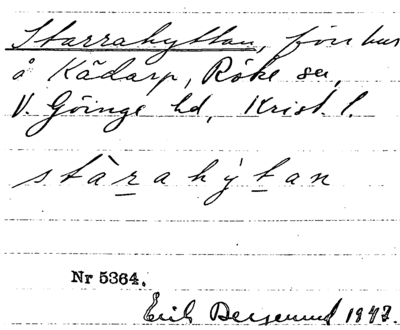 Starrahyttan, förr hus
å Kådarp, Röke sn,
V. Göinge hd, Krist. l.
stàrahỳtan
Nr 5364.
Erik 1947.